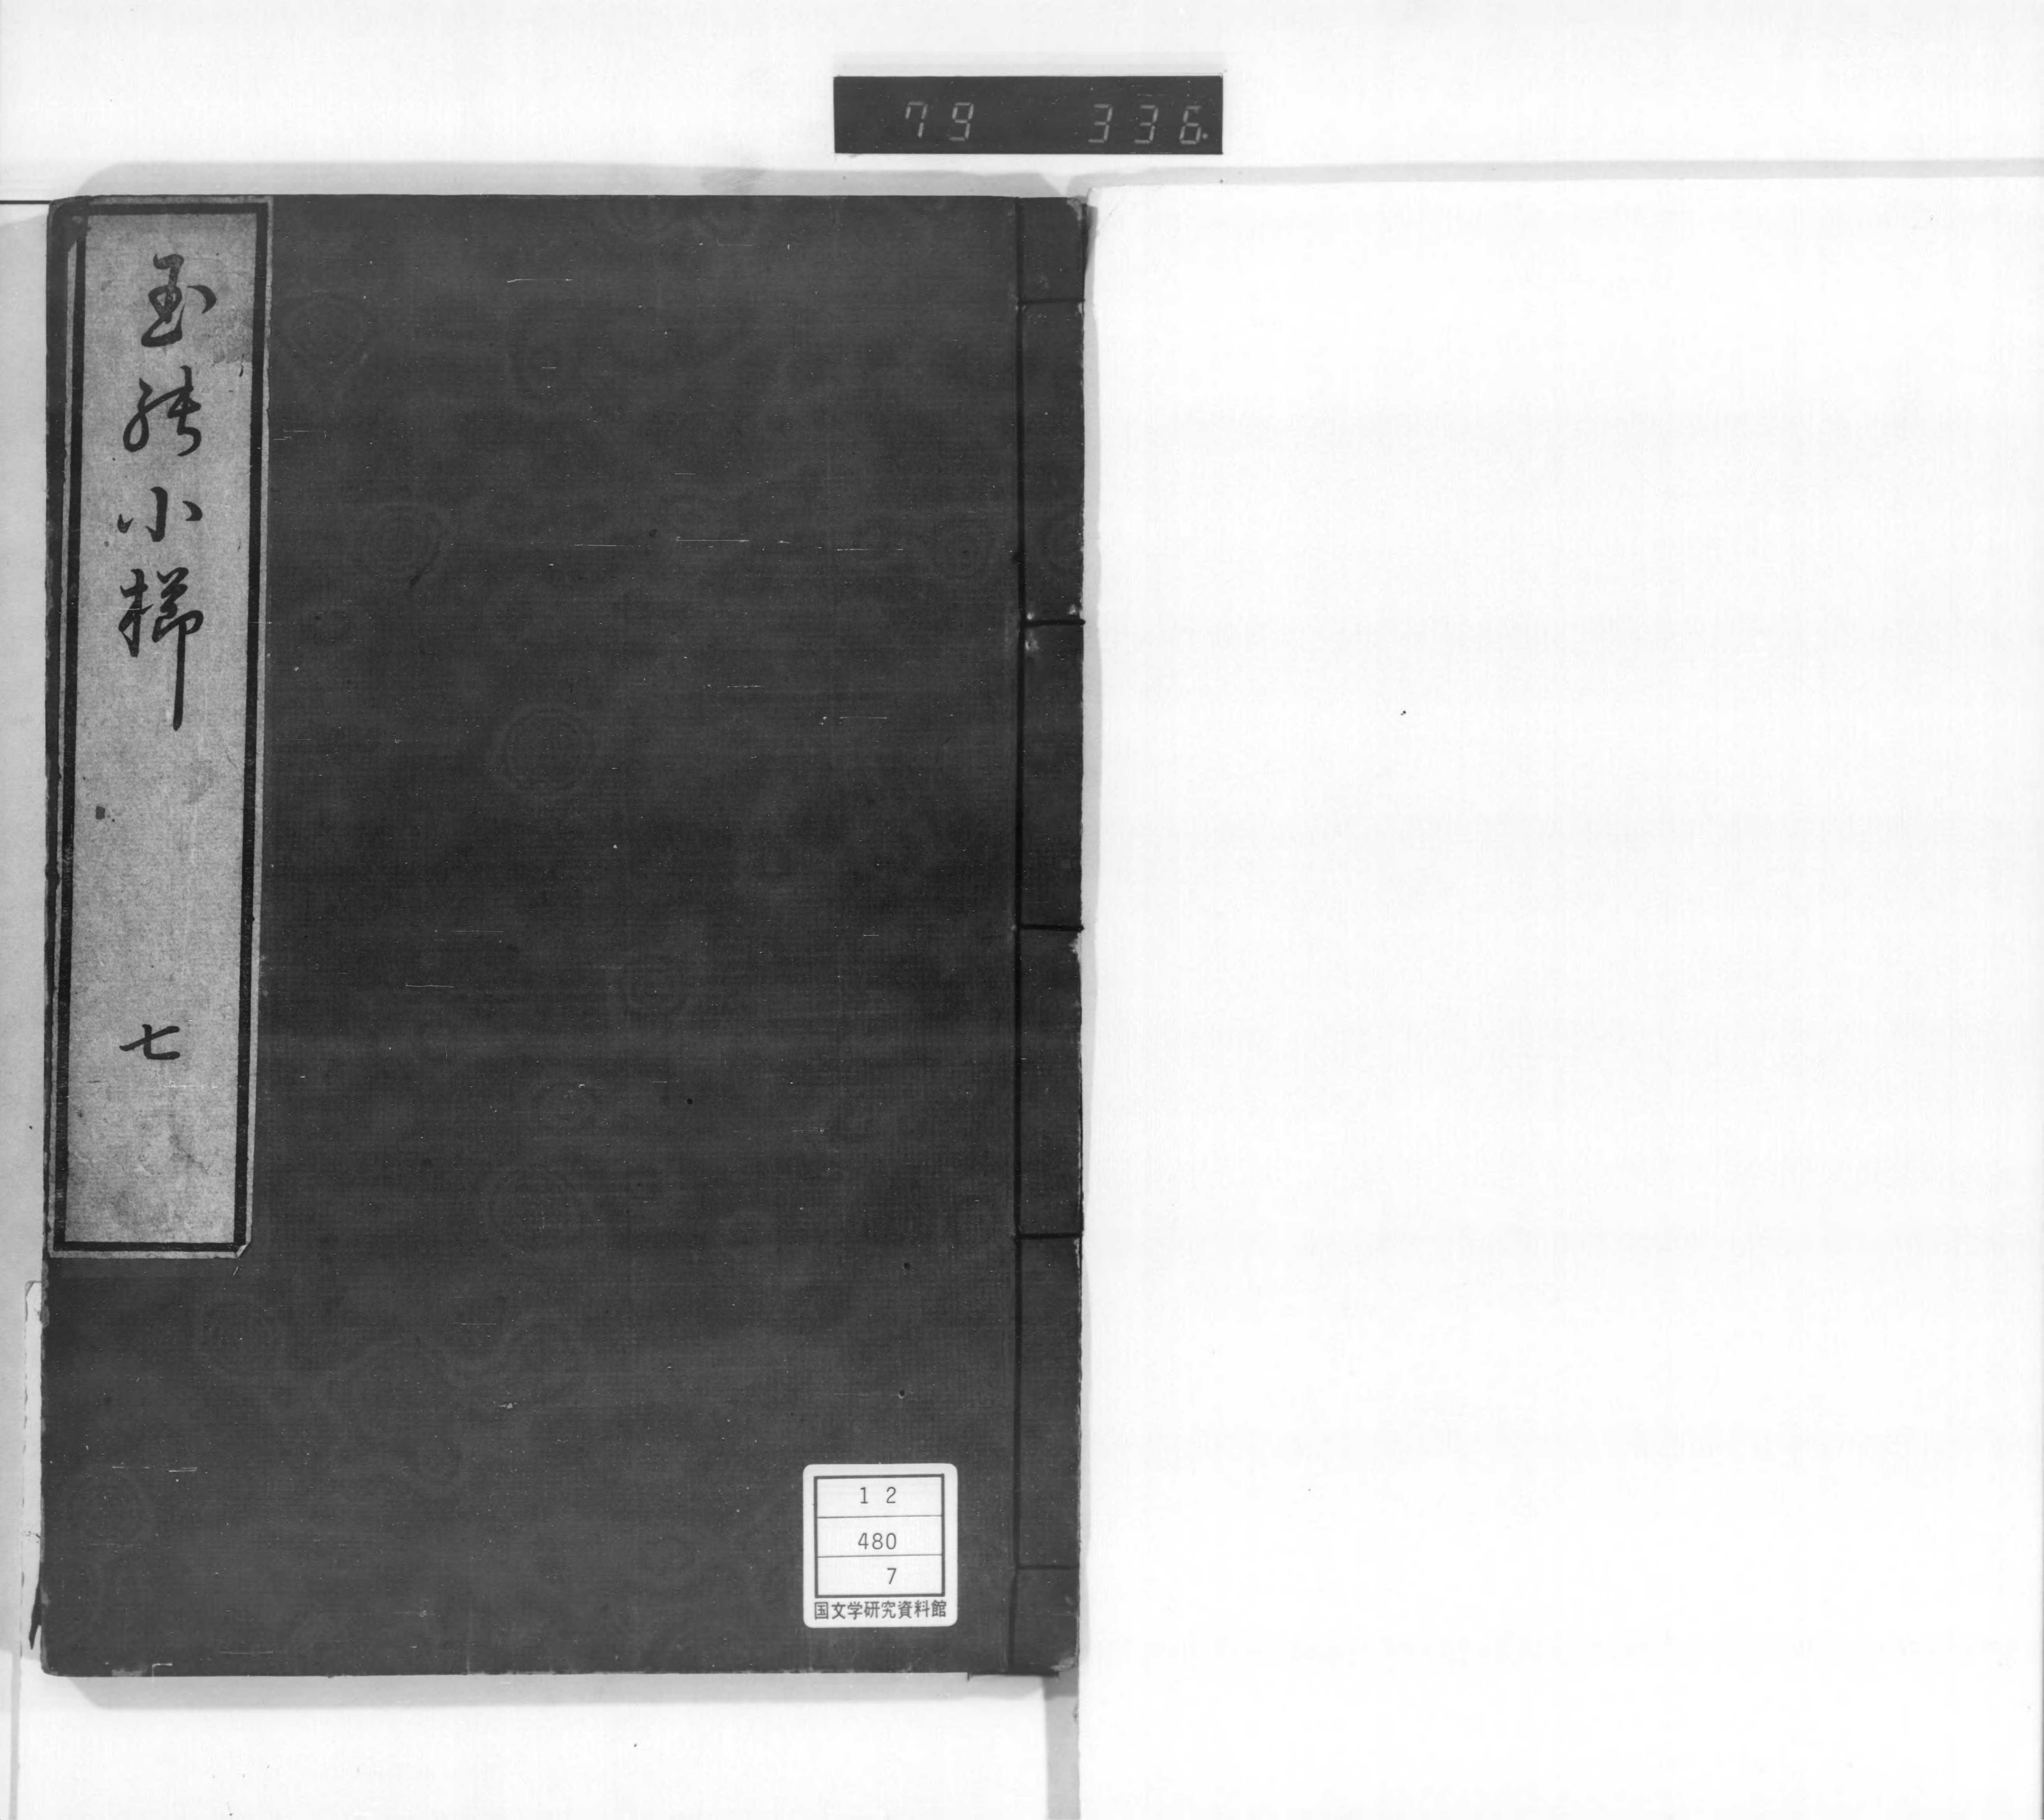 79 336
玉能小櫛
七
12
480
7
国文学研究資料館